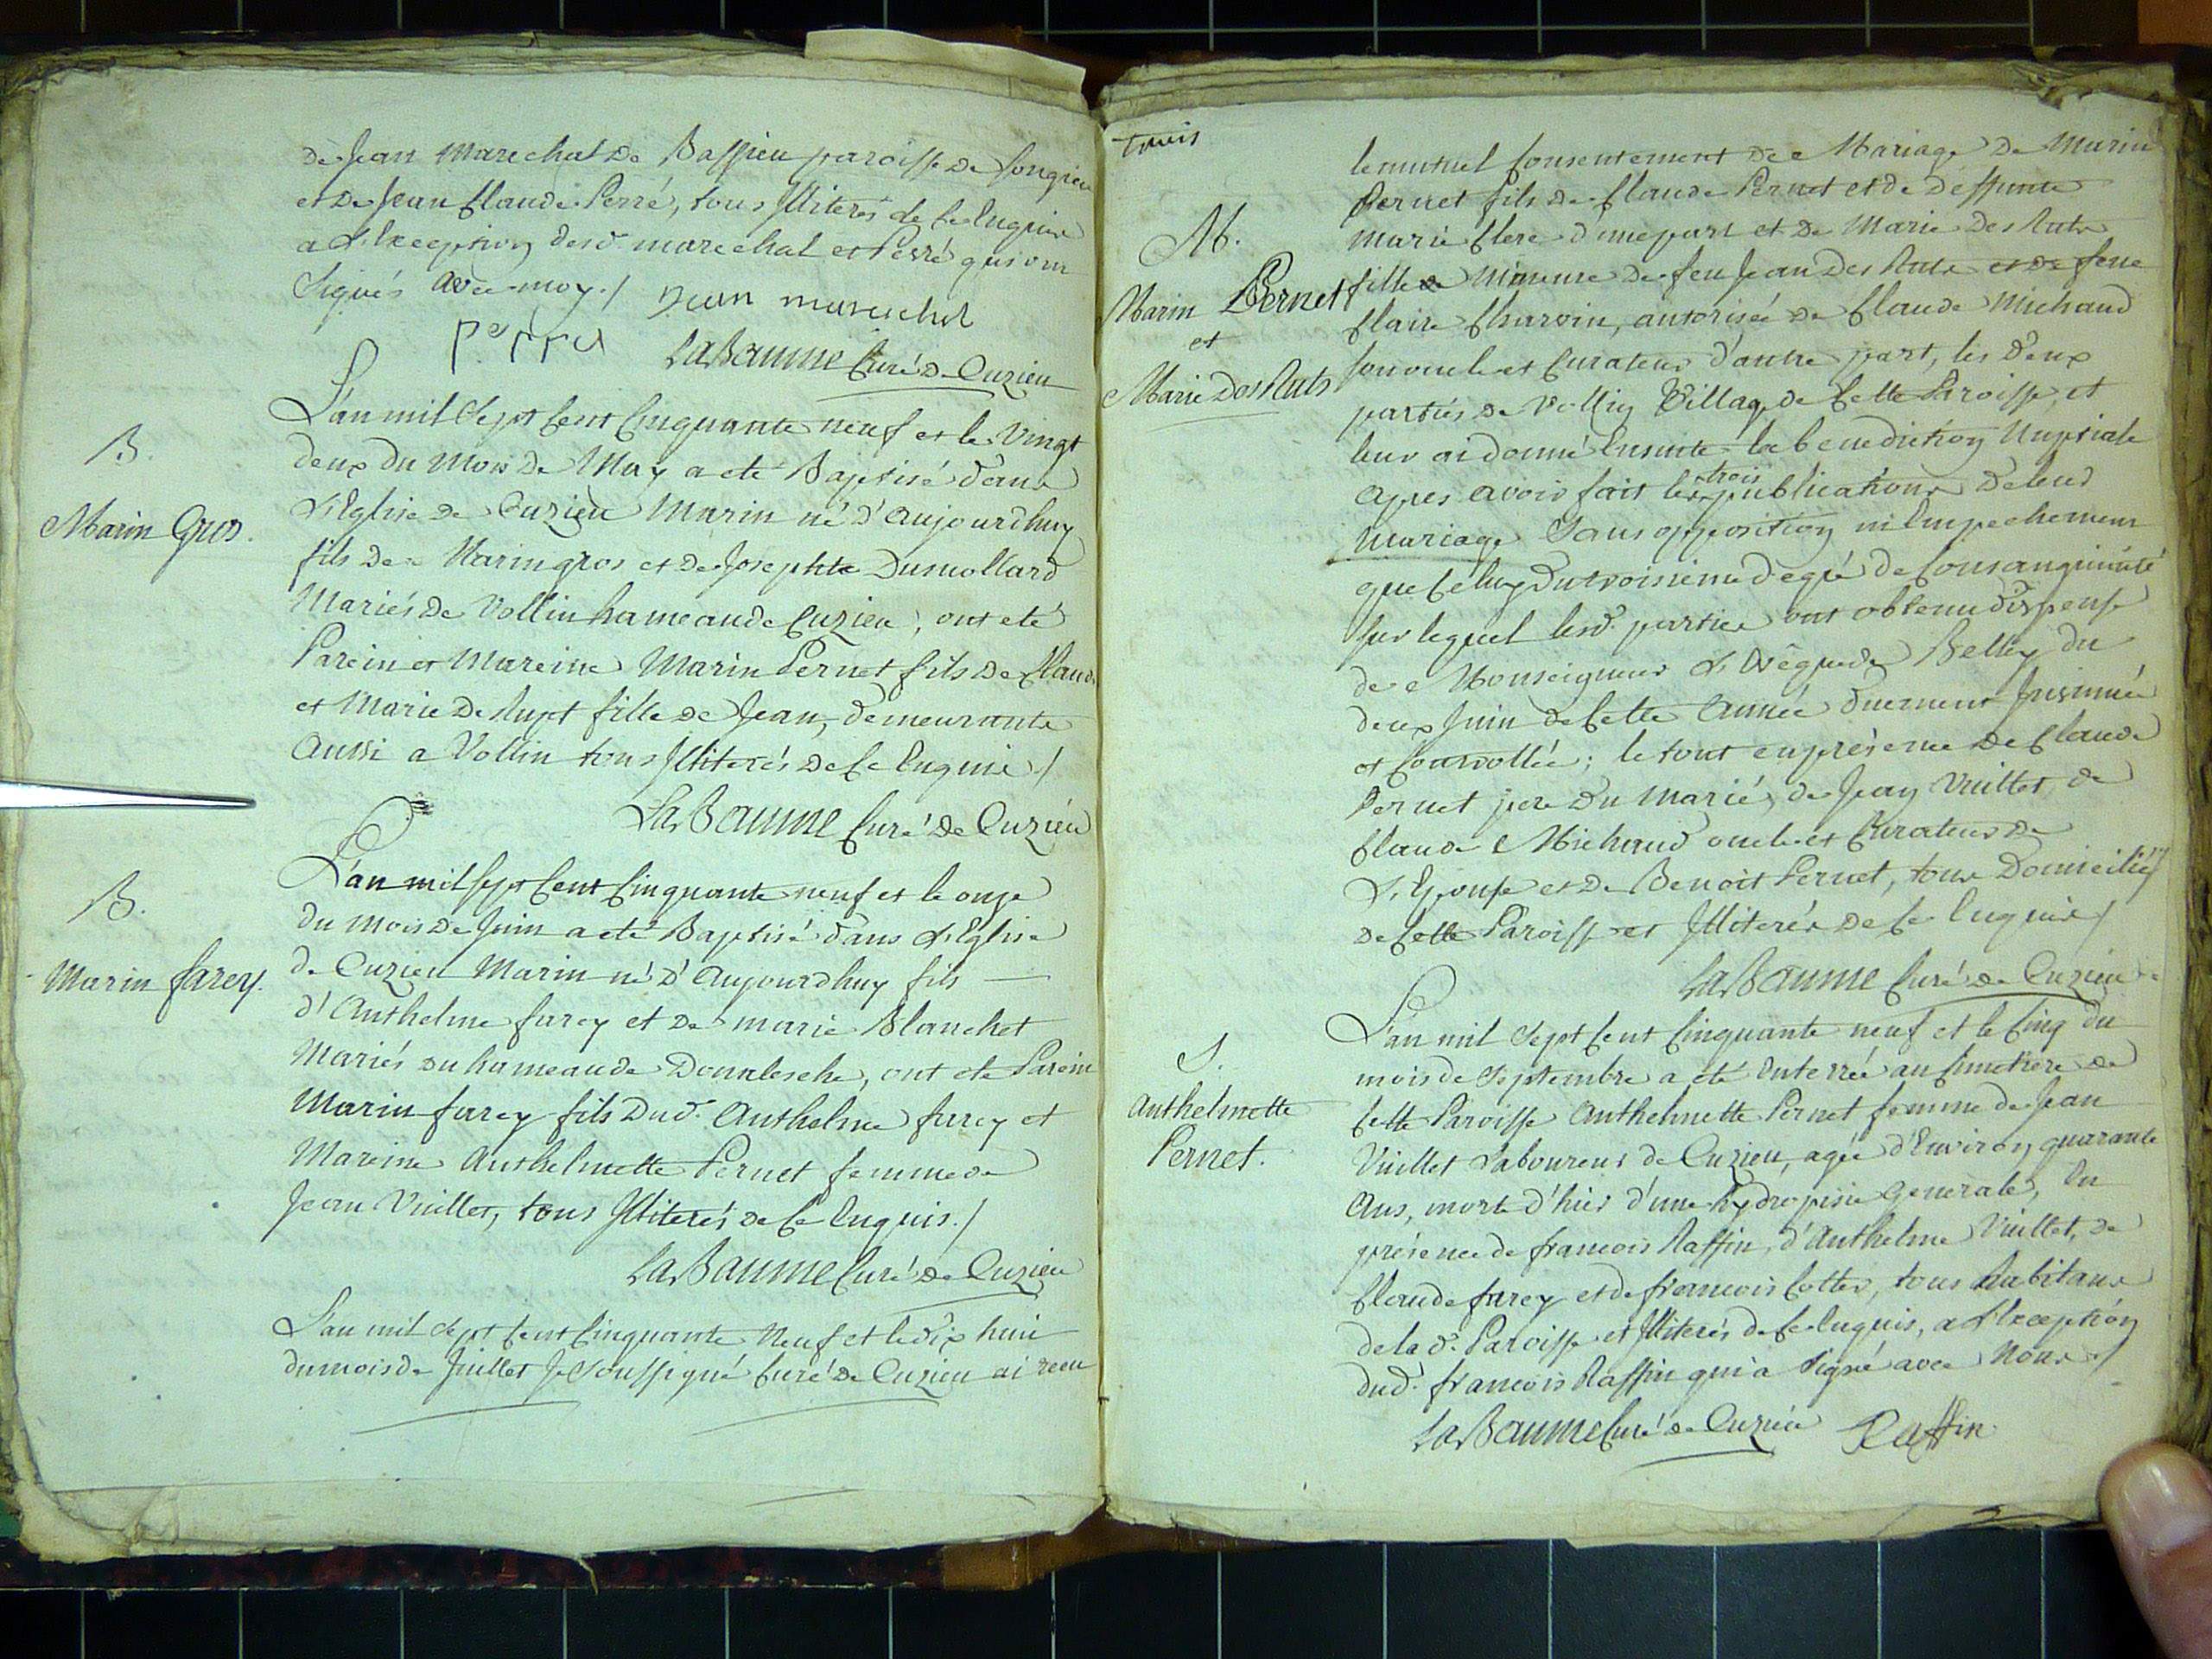 de Jean Marechal de Bassieu paroisse de Songieu
et de Jean Claude Perré, tous Illiterés de ce Enquis
a L'Exception desd. marechal et Perré qui ont
signés avec moy ./ Jean marechal
perré LaBaume Curé de Cuzieu
B.
Marin Gros.
L'an mil Sept Cent Cinquante neuf et le vingt
deux du Mois de May a eté Baptisé dans
L'Eglise de Cuzieu Marin né d'aujourdhuy
fils de Marin gros et de Josephte Dumollard
Mariés de Vollin hameau de Cuzieu, ont eté
Parein et Mareine Marin Pernet fils de Claude
et Marie Derupt fille de Jean, demeurants
aussi a Vollin tous Illiterés de ce Enquis ./
LaBaume Curé de Cuzieu
B.
Marin farey.
L'an mil sept Cent Cinquante neuf et le onze
du mois de Juin a eté Baptisé dans L'Eglise
de Cuzieu Marin né d'aujourdhuy fils
d'Anthelme farey et de marie Blanchet
Mariés du hameau de , ont eté Parein
Marin farey fils dud. Anthelme farey et
Mareine Anthelmette Pernet femme de
Jean Vuillet, tous Illiterés de ce Enquis ./
LaBaume Curé de Cuzieu
L'an mil Sept Cent Cinquante Neuf et le dix huit
du mois de Juillet Je soussigné Curé de Cuzieu ai recu
trois
M.
Marin Pernet
et
Marie Des Ruts
le mutuel Consentement de Mariage de Marin
Pernet fils de Claude Pernet et de deffunte
Marie Clerc d'une part et de Marie des Ruts
fille Mineure de feu Jean Des Ruts et de feue
Claire Charvin, autorisée de Claude Michaud
son oncle et Curateur d'autre part, les deux
parties de Vollin Village de Cette Paroisse, et
leur ai donné Ensuite la benediction Nuptiale
apres avoir fait les trois publications de leur
Mariage sans opposition ni Empechement
que Celuy du troisieme degré de Consanguinité
sur lequel lesd. parties ont obtenu dispense
de Monseigneur L'Evêque de Belley du
deux Juin de Cette année duement Insinuée
et Controllée; le tout en présence de Claude
Pernet pere du Marié, de Jean Vuillet, de
Claude Michaud oncle et Curateur de
L'Epouse et de Benoit Pernet, tous Domiciliés
de Cette Paroisse et Illiterés de ce Enquis ./
LaBaume Curé de Cuzieu
S.
Anthelmette
Pernet.
L'an mil Sept Cent Cinquante neuf et le Cinq du
mois de Septembre a été Enterrée au Cimetiere de
Cette Paroisse Anthelmette Pernet femme de Jean
Vuillet Laboureur de Cuzieu, agée d'Environ quarante
ans, morte d'hier d'une hydropisie generale, En
présence de francois Raffin, d'Anthelme Vuillet, de
Claude farey et de francois Cottin, tous habitans
de lad. Paroisse et Illiterés de ce Enquis, a L'Exception
dud. francois Raffin qui a signé avec Nous ./
LaBaume Curé de Cuzieu Raffin